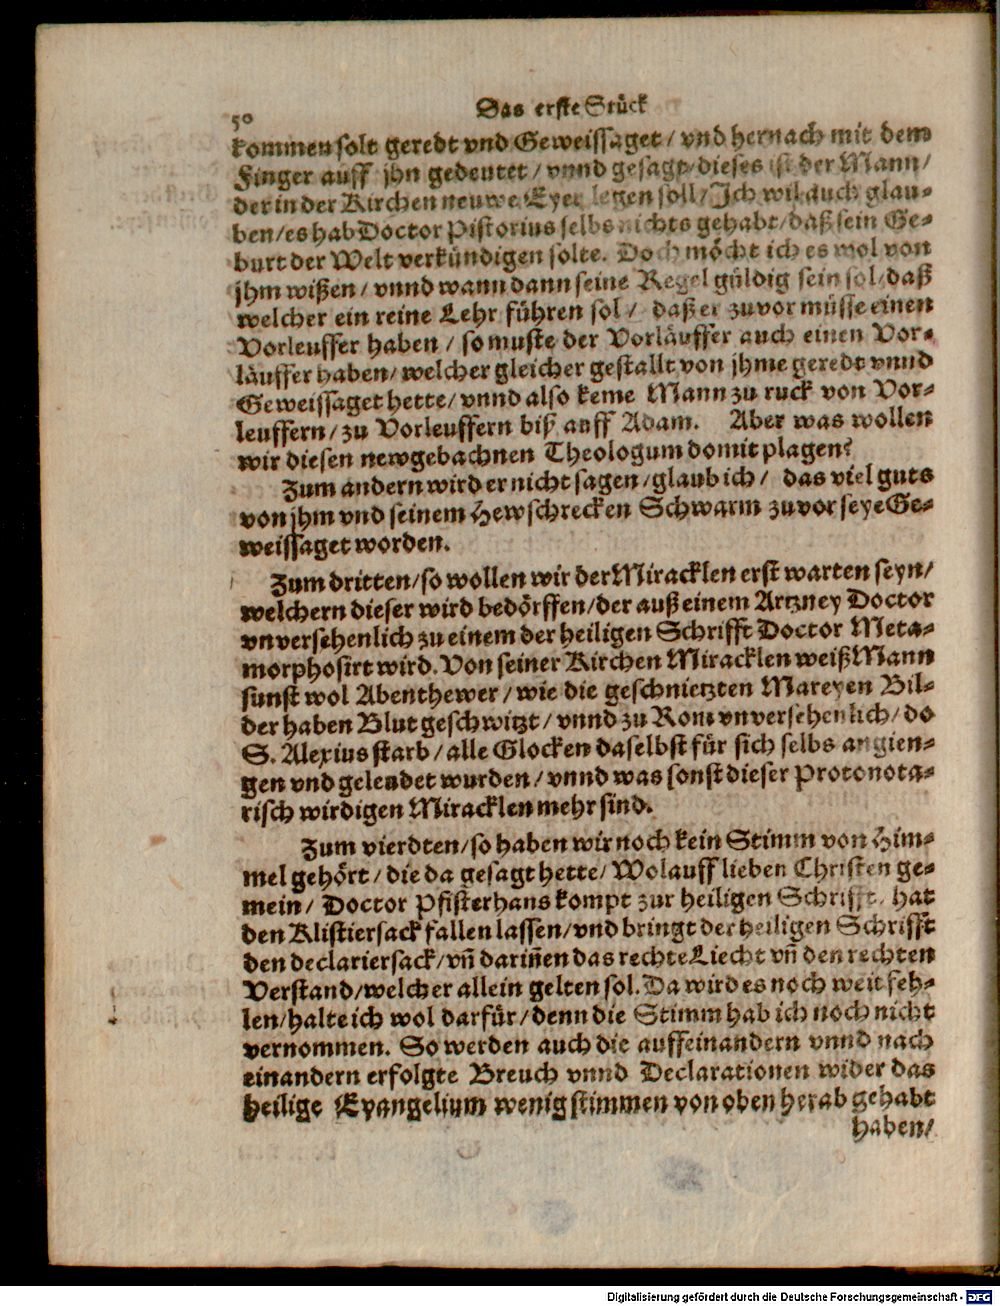 50
Das erste Stück
kommen solt geredt vnd Geweissaget / vnd hernach mit dem
Finger auff jhn gedeutet / vnnd gesagt / dieses ist der Mann /
der in der Kirchen neuwe Eyer legen soll / Ich wil auch glau-
ben / es hab Doctor Pistorius selbs nichts gehabt / daß sein Ge-
burt der Welt verkündigen solte. Doch möcht ich es wol von
jhm wißen / vnnd wann dann seine Regel güldig sein sol / daß
welcher ein reine Lehr führen sol / daß er zuvor müsse einen
Vorleuffer haben / so muste der Vorläuffer auch einen Vor-
läuffer haben / welcher gleicher gestallt von jhme geredt vnnd
Geweissaget hette / vnnd also keme Mann zu ruck von Vor-
leuffern / zu Vorleuffern biß auff Adam. Aber was wollen
wir diesen newgebachnen Theologum domit plagen?
Zum andern wird er nicht sagen / glaub ich / das viel guts
von jhm vnd seinem Hewschrecken Schwarm zuvor seye Ge-
weissaget worden.
Zum dritten / so wollen wir der Miracklen erst warten seyn /
welchern dieser wird bedörffen / der auß einem Artzney Doctor
vnversehenlich zu einem der heiligen Schrifft Doctor Meta-
morphosirt wird. Von seiner Kirchen Miracklen weiß Mann
sunst wol Abenthewer / wie die geschnietzten Mareyen Bil-
der haben Blut geschwitzt / vnnd zu Rom vnversehenlich / do
S. Alexius starb / alle Glocken daselbst für sich selbs angien-
gen vnd geleudet wurden / vnnd was sonst dieser Protonota-
risch wirdigen Miracklen mehr sind.
Zum vierdten / so haben wir noch kein Stimm von Him-
mel gehört / die da gesagt hette / Wolauff lieben Christen ge-
mein / Doctor Pfisterhans kompt zur heiligen Schrifft / hat
den Klistiersack fallen lassen / vnd bringt der heiligen Schrifft
den declariersack / vñ dariñen das rechte Liecht vñ den rechten
Verstand / welcher allein gelten sol. Da wird es noch weit feh-
len / halte ich wol darfür / denn die Stimm hab ich noch nicht
vernommen. So werden auch die auffeinandern vnnd nach
einandern erfolgte Breuch vnnd Declarationen wider das
heilige Evangelium wenig stimmen von oben herab gehabt
haben /
Digitalisierung gefördert durch die Deutsche Forschungsgemeinschaft - DFG